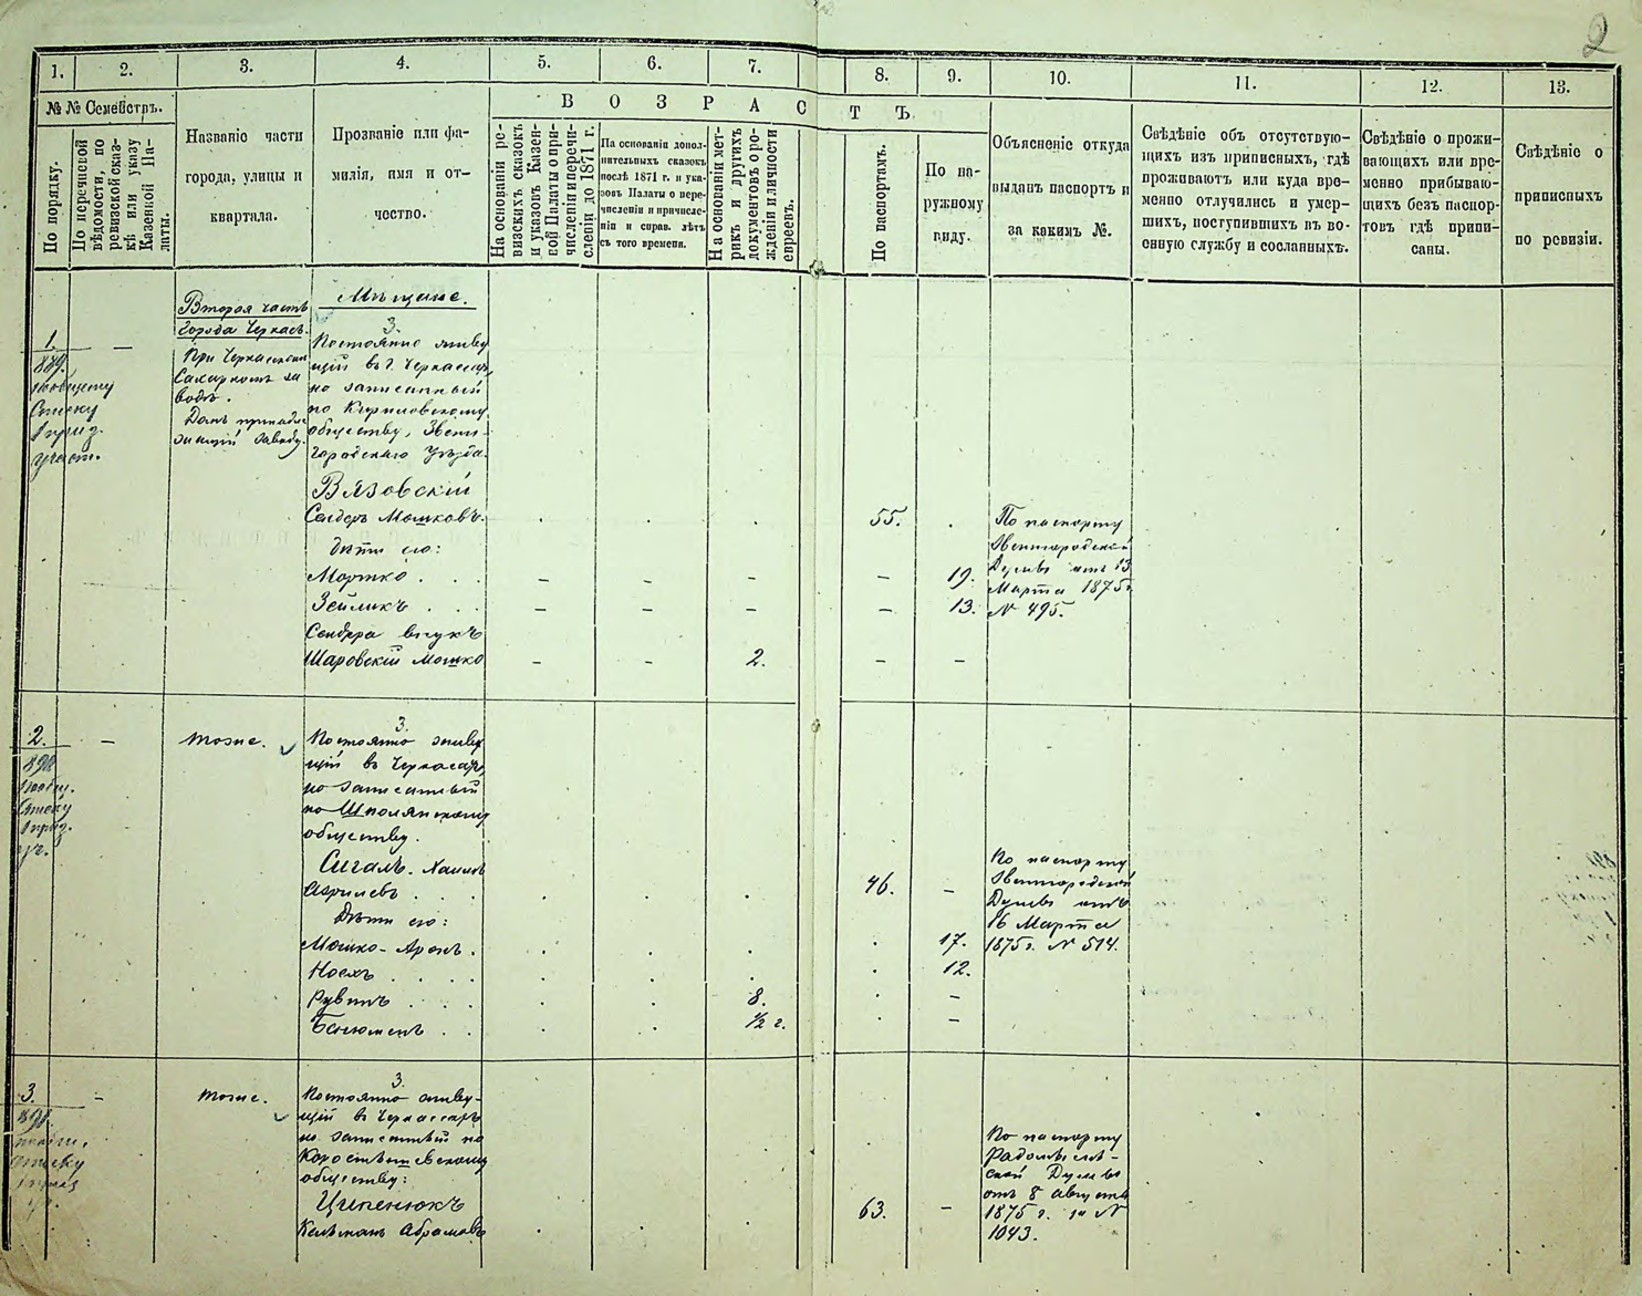 2
1.
2.
3.
4.
5.
6.
7.
8.
9.
10.
11.
12.
13.
№ № Семействъ.
По порядку.
По перечневой
вѣдомости, по
ревизской сказ-
кѣ или указу
Казенной Па-
латы.
Названіе части
города, улицы и
квартала.
Прозваніе или фа-
милія, имя и от-
чество.
ВОЗРАСТЪ
На основаніи ре-
визскихъ сказокъ
и указовъ Казен-
ной Палаты о при-
численіи и перечи-
сленіи до 1871 г.
На основаніи допол-
нительныхъ сказокъ
послѣ 1871 г. и ука-
зовъ Палаты о пере-
численіи и причисле-
ніи и справ. лѣтъ
съ того времени.
На основаніи мет-
рикъ и другихъ
документовъ о ро-
жденіи и личности
евреевъ.
По паспортамъ.
По на-
ружному
виду.
Объясненіе откуда
выданъ паспортъ и
за какимъ №.
Свѣдѣніе объ отсутствую-
щихъ изъ приписныхъ, гдѣ
проживаютъ или куда вре-
менно отлучились и умер-
шихъ, поступившихъ въ во-
енную службу и сосланныхъ.
Свѣдѣніе о прожи-
вающихъ или вре-
менно прибываю-
щихъ безъ паспор-
товъ гдѣ припи-
саны.
Свѣдѣніе о
приписныхъ
по ревизіи.
1. —
889.
Списку
1 приз.
участ.
Вторая часть
города Черкасъ.
При Черкасскомъ
Сахарномъ за
водѣ.
Домъ принадле
жащій заводу.
Мѣщане.
3.
Постоянно живу
щій въ г. Черкасахъ,
но записанный
по Кириловскому
обществу, Звени-
городскаго уѣзда.
Вязовскій
Сендеръ Мошковъ. 55.
Дѣти его:
Мортко . . . — — — — 19.
Зейликъ . . . — — — — 13.
Сендера внукъ
Шаровскій Мошко — — 2. — —
По паспорту
Звенигородской
Думы отъ 13
Марта 1875 г.
№ 495.
2. —
890
Списку
1 приз.
уч.
тоже.
3.
Постоянно живу
щій въ Черкасахъ,
но записанный
по Шполянскому
обществу.
Сигалъ. Хаимъ
Азрилевъ . . . 46. —
Дѣти его:
Мошко-Аронъ . 17.
Ноехъ . . . . 12.
Рувинъ . . . 8. —
Бенюменъ . . ½ г. —
По паспорту
Звенигородской
Думы отъ
16 Марта
1875 г. № 514.
3. —
891.
списку
тоже.
3.
Постоянно живу-
щій въ Черкасахъ
но записанный по
Коростышевскому
обществу:
Ципенюкъ
Кельманъ Абрамовъ 63. —
По паспорту
Радомысль-
ской Думы
отъ 8 августа
1875 г. за №
1043.